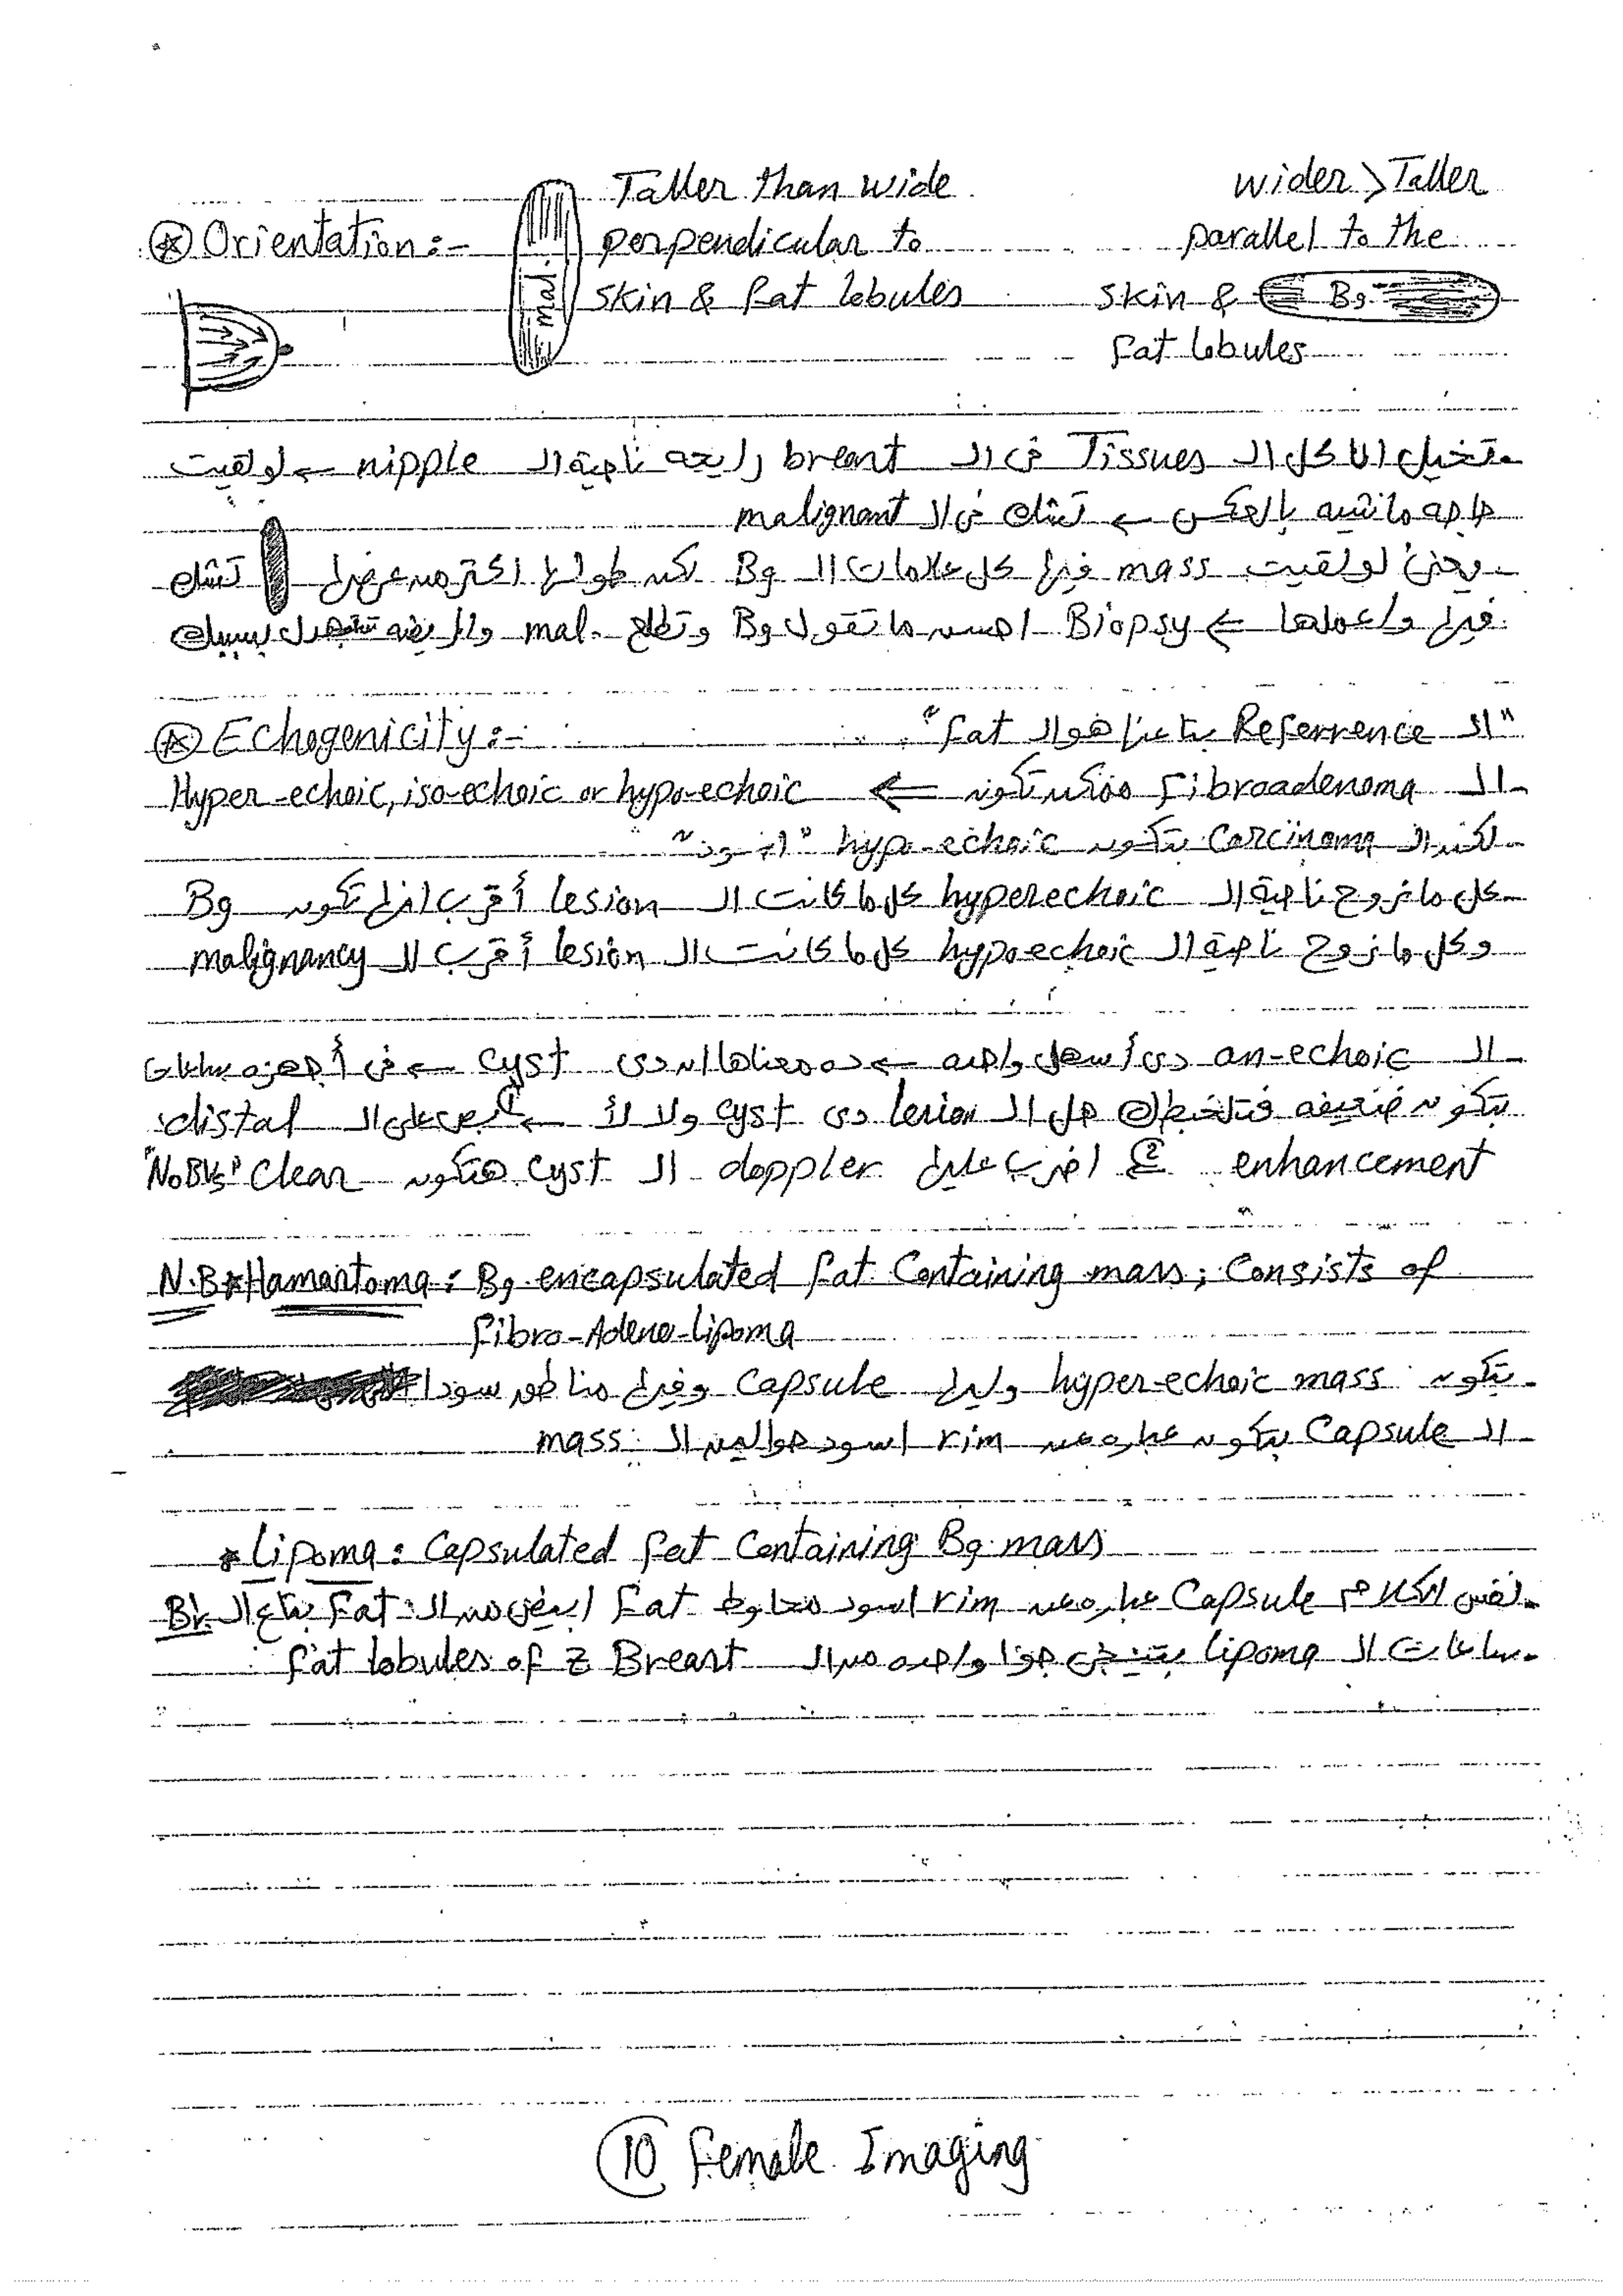 Taller than wide
wider > Taller
⊛ Orientation :-
perpendicular to
parallel to the
mal.
skin & fat lobules
skin &
Bg
fat lobules
- تخيل ان كل الـ Tissues فى الـ breast رايحه ناحية الـ nipple ← لو لقيت
حاجه ماشيه بالعكس ← تشك فى الـ malignant
- يعنى لو لقيت mass فيها كل علامات الـ Bg لكن طولها اكتر من عرضها تشك
فيها واعملها ⇐ Biopsy احسن ما تقول Bg وتطلع mal. والمريضه تتبهدل بسببك
⊛ Echogenicity :-
"الـ Referrence بتاعنا هو الـ fat"
- الـ fibroadenoma ممكن تكون ⇐ Hyper-echoic, iso-echoic or hypo-echoic
- لكن الـ Carcinoma بتكون hypo-echoic "اسود"
- كل ما نروح ناحية الـ hyperechoic كل ما كانت الـ lesion أقرب انها تكون Bg
وكل ما نروح ناحية الـ hypoechoic كل ما كانت الـ lesion أقرب للـ malignancy
- الـ an-echoic دى أسهل واحده ← ده معناها ان دى cyst ← فى أجهزه ساعات
بتكون ضعيفه فتلخبطك هل الـ lesion دى cyst ولا لأ ← ① بص على الـ distal
enhancement ② اضرب عليها doppler الـ cyst هتكون Clear "No BVs"
N.B * Hamartoma : Bg encapsulated fat Containing mass; Consists of
fibro-Adeno-lipoma
- بتكون hyper-echoic mass وليها Capsule وفيها مناطق سودا
- الـ Capsule بتكون عباره عن rim اسود حوالين الـ mass
* Lipoma : Capsulated fat Containing Bg mass
- نفس الكلام Capsule عباره عن rim اسود محاوط fat ابيض من الـ fat بتاع الـ Br.
- ساعات الـ lipoma بتيجى جوا واحده من الـ fat lobules of z Breast
⑩ Female Imaging